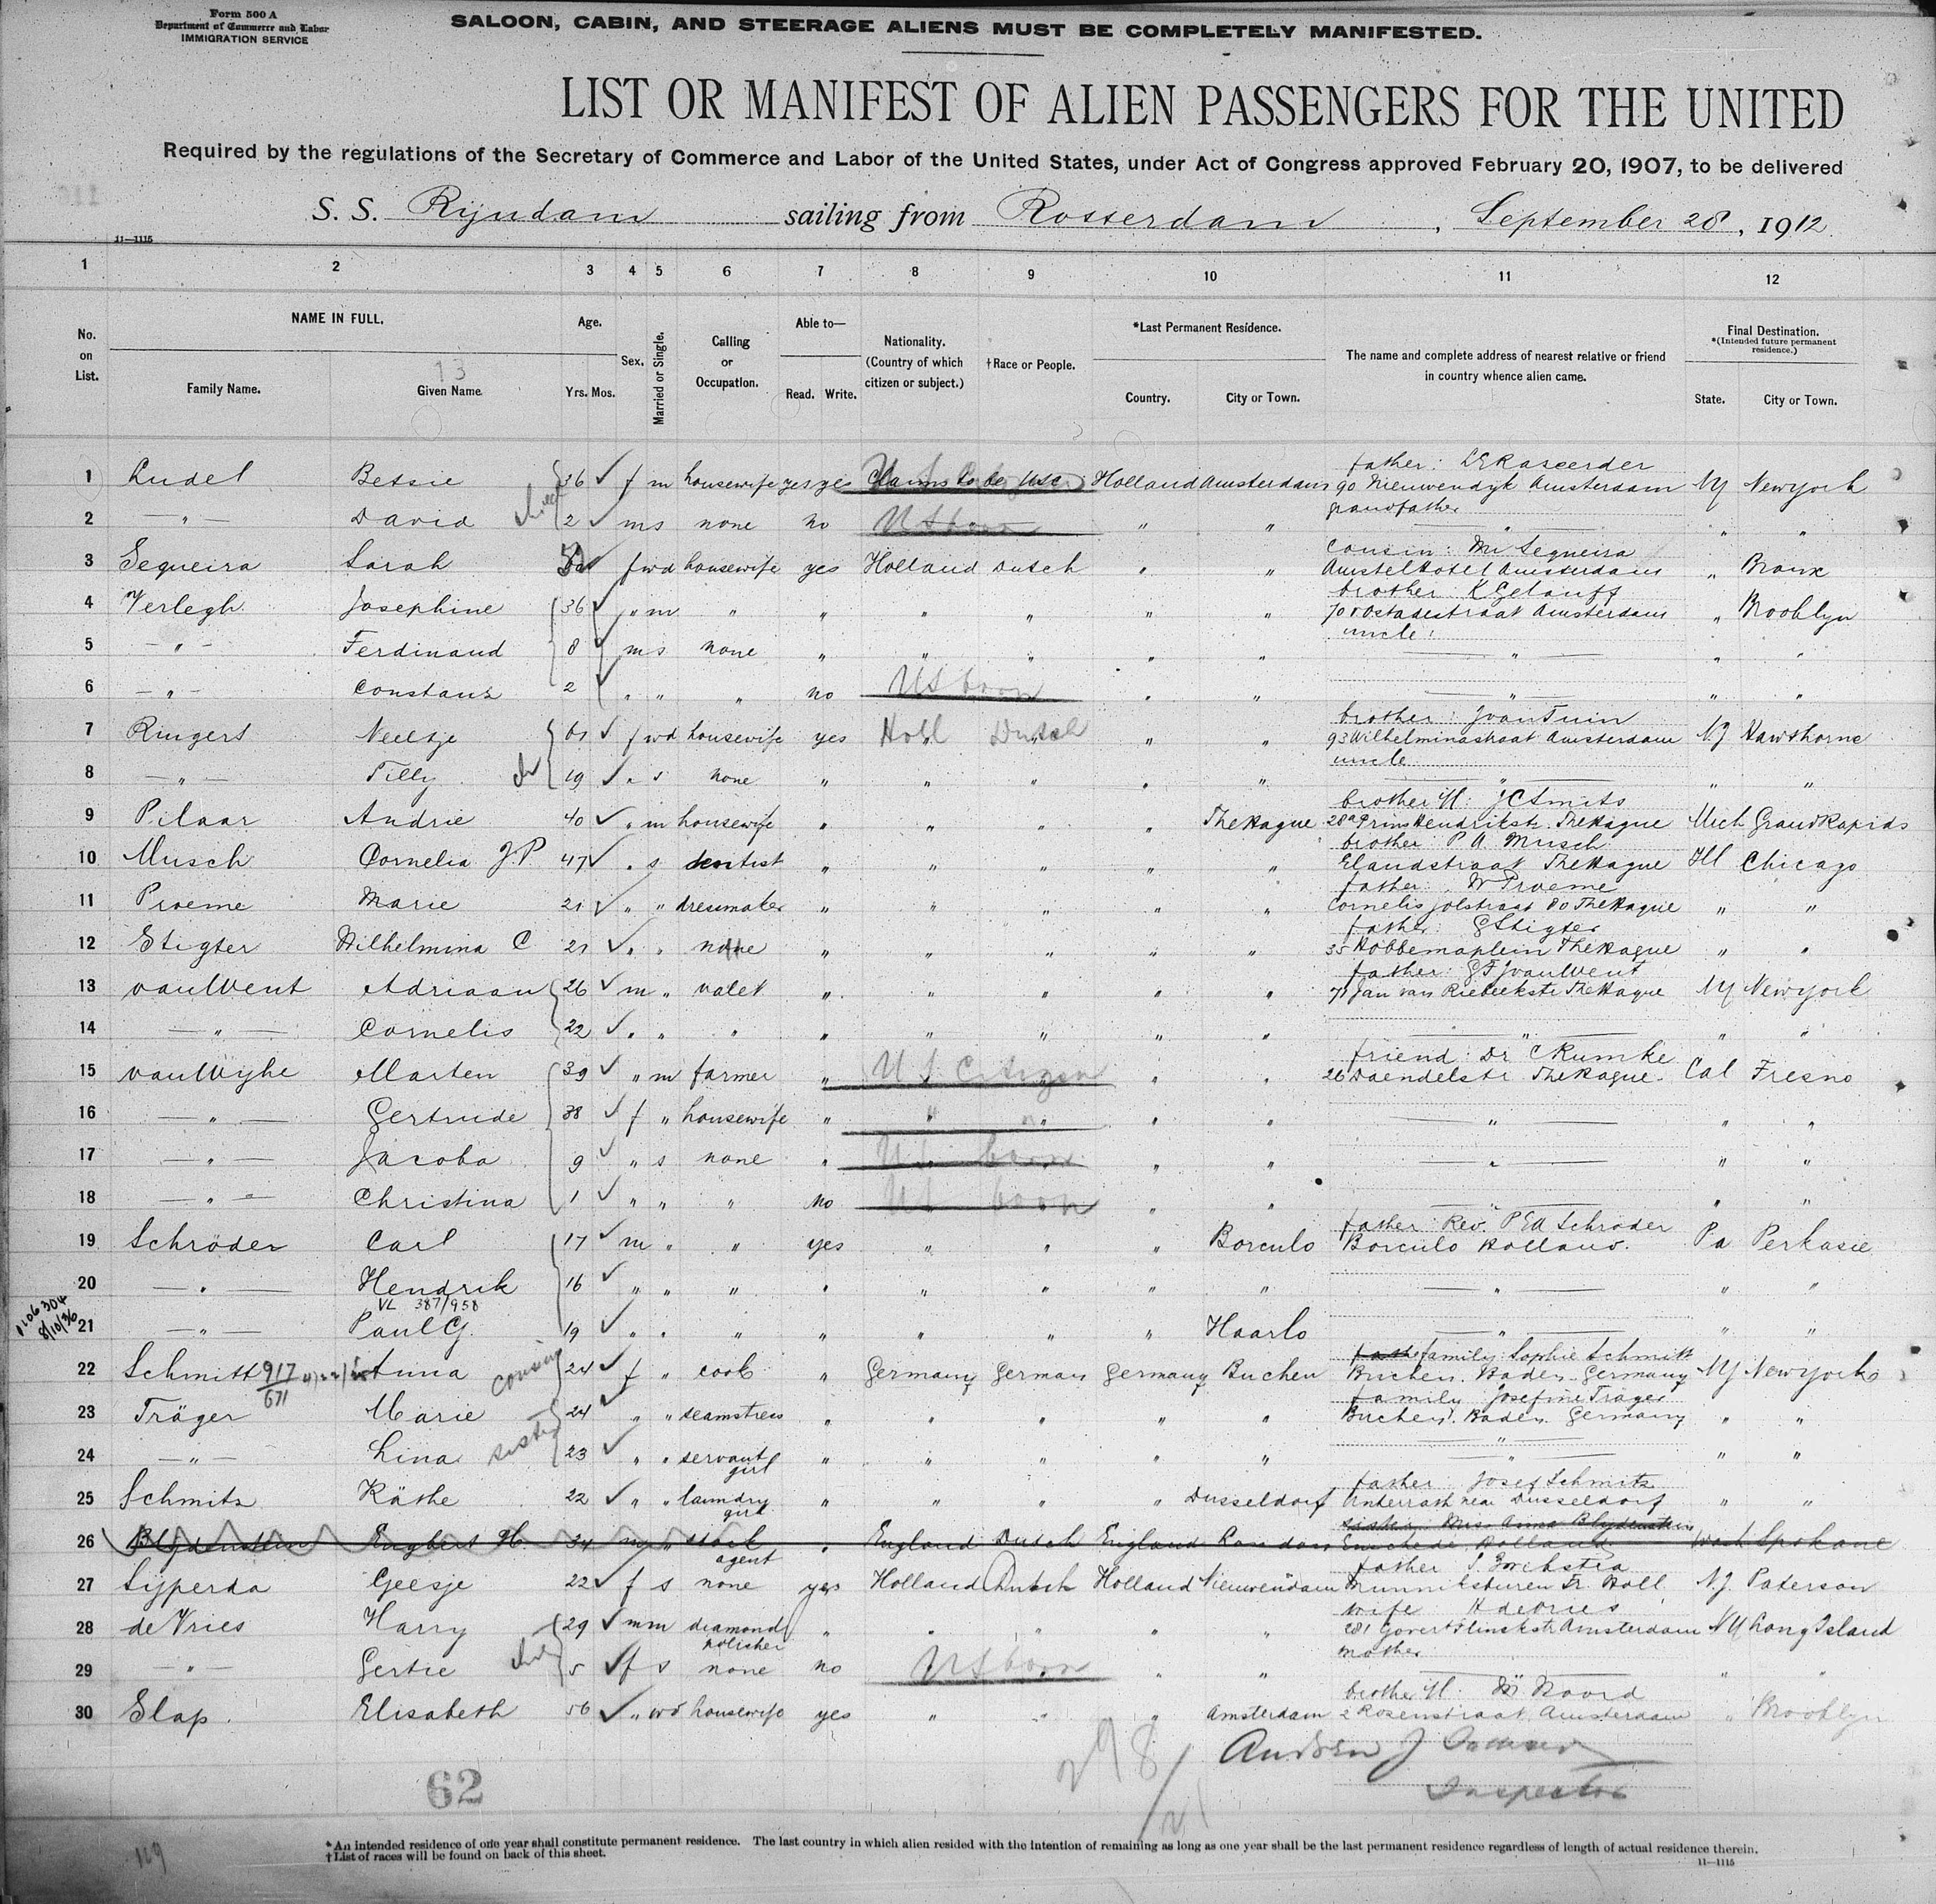 Form 500 A
Department of Commerce and Labor
IMMIGRATION SERVICE
SALOON, CABIN, AND STEERAGE ALIENS MUST BE COMPLETELY MANIFESTED.
LIST OR MANIFEST OF ALIEN PASSENGERS FOR THE UNITED
Required by the regulations of the Secretary of Commerce and Labor of the United States, under Act of Congress approved February 20, 1907, to be delivered
S. S. Ryndam sailing from Rotterdam, September 28, 1912
11—1115
1 2 3 4 5 6 7 8 9 10 11 12
No. on List. NAME IN FULL. Family Name. Given Name. Age. Yrs. Mos. Sex. Married or Single. Calling or Occupation. Able to— Read. Write. Nationality. (Country of which citizen or subject.) †Race or People. *Last Permanent Residence. Country. City or Town. The name and complete address of nearest relative or friend in country whence alien came. Final Destination. *(Intended future permanent residence.) State. City or Town.
13
1 Ludel Betsie 36 f m housewife yes yes Claims to be USC Holland Amsterdam father: 90 Nieuwendyk Amsterdam NY New York
2 — " — David child 2 m s none no US born " " grandfather — " — " "
3 Sequeira Sarah f wd housewife yes Holland Dutch " " cousin: Mr Sequeira Amstel Hotel Amsterdam " Bronx
4 Verlegh Josephine 36 " m " " " " " " brother K Gelauff 70 v Ostadestraat Amsterdam " Brooklyn
5 — " — Ferdinand 8 m s none " " " " " uncle: — " — " "
6 — " — Constanz 2 " " " no US born " " — " — " "
7 Ringers Neeltje 61 f wd housewife yes Holl Dutch " " brother: J van Tuin 93 Wilhelminastraat Amsterdam N.J Hawthorne
8 — " — Tilly ch 19 " s none " " " " " uncle — " — " "
9 Pilaar Andrie 40 " m housewife " " " " The Hague brother Yl: J C Smits 28a Prins Hendrikstr. The Hague Mich Grand Rapids
10 Musch Cornelia J.P. 47 " s dentist " " " " " brother P A Musch Elandstraat The Hague Ill Chicago
11 Proeme Marie 21 " " dressmaker " " " " " father: W Proeme Cornelis Jolstraat 80 The Hague " "
12 Stigter Wilhelmina C 21 " " none " " " " " father: G Stigter 35 Hobbemaplein The Hague " "
13 van Went Adriaan 26 m " valet " " " " " father: G F J van Went 71 Jan van Riebeekstr The Hague NY New York
14 — " — Cornelis 22 " " " " " " " " — " — " "
15 van Wyhe Marten 39 " m farmer " U S Citizen " " friend: Dr C Rumke 26 Daendelstr The Hague. Cal Fresno
16 — " — Gertrude 38 f " housewife " " " " " — " — " "
17 — " — Jacoba 9 " s none " US born " " — " — " "
18 — " — Christina 1 " " " no US born " " — " — " "
19 Schröder Carl 17 m " " yes " " " Borculo father: Rev. P E A Schröder Borculo Holland. Pa Perkasie
20 — " — Hendrik 16 " " " " " " " " — " — " "
VL 387/958
8/10/36
21 — " — Paul G. 19 " " " " " " " Haarlo — " — " "
22 Schmitt 917/671 Anna cousin 24 f " cook " Germany German Germany Buchen family Sophie Schmitt Buchen. Baden. Germany NY New York
23 Träger Marie 24 " " seamstress " " " " " family Josefine Träger Buchen. Baden. Germany " "
24 — " — Lina sister 23 " " servant girl " " " " " — " — " "
25 Schmitz Käthe 22 " " laundry girl " " " " Dusseldorf father: Josef Schmitz Unterrath near Dusseldorf " "
26 Blydenstein Engbert H. 34 m " stock agent " England Dutch England London sister Miss Anna Blydenstein Enschede Holland. Wash Spokane
27 Sijperda Geesje 22 f s none yes Holland Dutch Holland Nieuwendam father Munnikeburen Fr. Holl N.J. Paterson
28 de Vries Harry 29 m m diamond polisher " " " " " wife H de Vries 281 Govert Flinckstr Amsterdam NY Long Island
29 — " — Gertie child 5 f s none no US born " " mother — " — " "
30 Slap. Elisabeth 56 " wd housewife yes " " " Amsterdam brother Yl. M Noord 2 Rosenstraat Amsterdam " Brooklyn
Inspector
62
119
*An intended residence of one year shall constitute permanent residence. The last country in which alien resided with the intention of remaining as long as one year shall be the last permanent residence regardless of length of actual residence therein.
†List of races will be found on back of this sheet.
11—1115